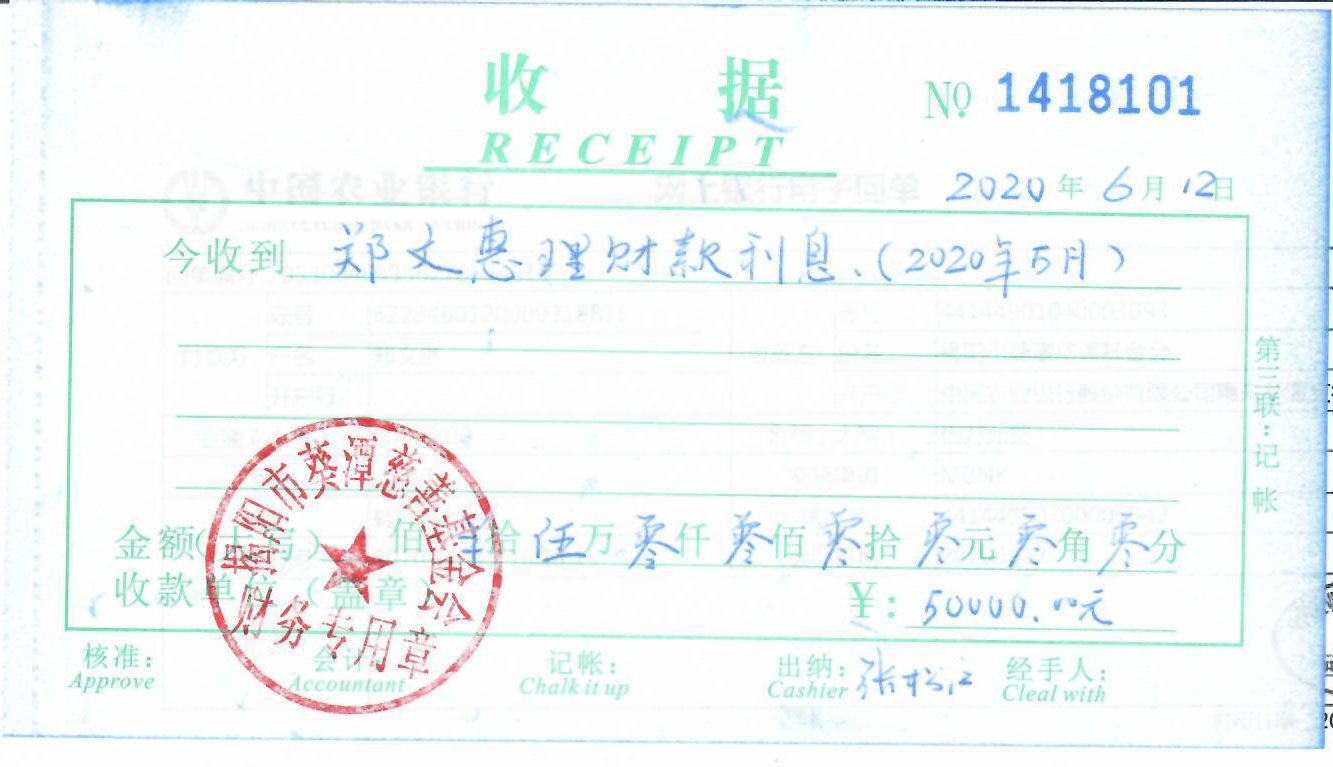 收 据
RECEIPT
№ 1418101
2020年6月12日
今收到 郑文惠理财款利息、(2020年5月)
金额(大写) 佰 拾 伍万 零仟 零佰 零拾 零元 零角 零分
收款单位(盖章)
¥: 50000.00元
揭阳市葵潭慈善基金会
财务专用章
第三联:记帐
核准: 会计: 记帐: 出纳: 张松江 经手人:
Approve Accountant Chalk it up Cashier Cleal with